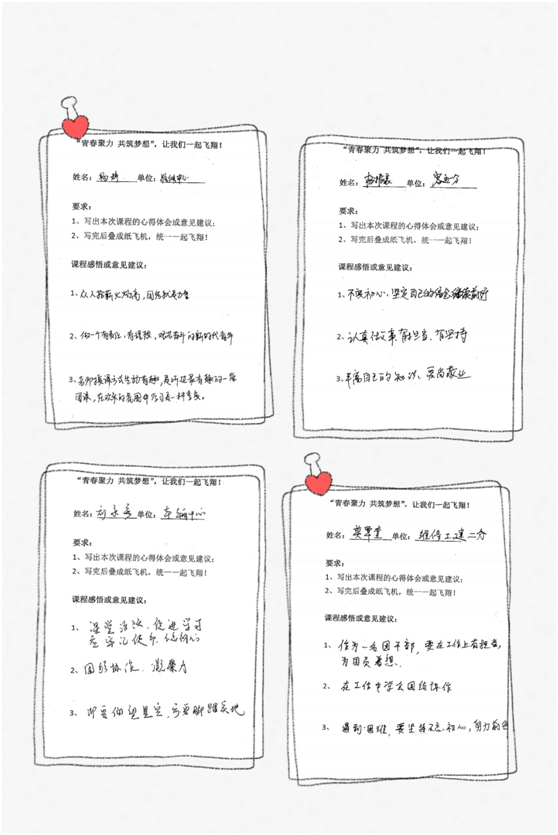 “青春聚力 共筑梦想”，让我们一起飞翔！
姓名： 单位：中心
要求：
1、写出本次课程的心得体会或意见建议；
2、写完后叠成纸飞机，统一一起飞翔！
课程感悟或意见建议：
1、众人拾薪火焰高，团结就是力量
2、做一个有责任、有课授、的新时代青年
3、老师授课方式生动有趣，是听过最有趣的一堂
团课，在欢乐的氛围中学习是一种享受。
“青春聚力 共筑梦想”，让我们一起飞翔！
姓名： 单位：
要求：
1、写出本次课程的心得体会或意见建议；
2、写完后叠成纸飞机，统一一起飞翔！
课程感悟或意见建议：
1、不忘初心，坚定自己的信念继续前行
2、认真做事有担当、有坚持
3、丰富自己的知识、爱岗敬业
“青春聚力 共筑梦想”，让我们一起飞翔！
姓名： 单位：车辆中心
要求：
1、写出本次课程的心得体会或意见建议；
2、写完后叠成纸飞机，统一一起飞翔！
课程感悟或意见建议：
1、课堂活泼、促进学习
应牢记使命、信初心
2、团结协作、凝聚力
3、即要仰望星空，亦要脚踏实地
“青春聚力 共筑梦想”，让我们一起飞翔！
姓名：莫翠堂 单位：维修工建二分
要求：
1、写出本次课程的心得体会或意见建议；
2、写完后叠成纸飞机，统一一起飞翔！
课程感悟或意见建议：
1、作为一名团干部，要在工作上有担当，
为团员着想．
2、在工作中学会团结协作
3、遇到困难，要坚持不忘初心，努力前进